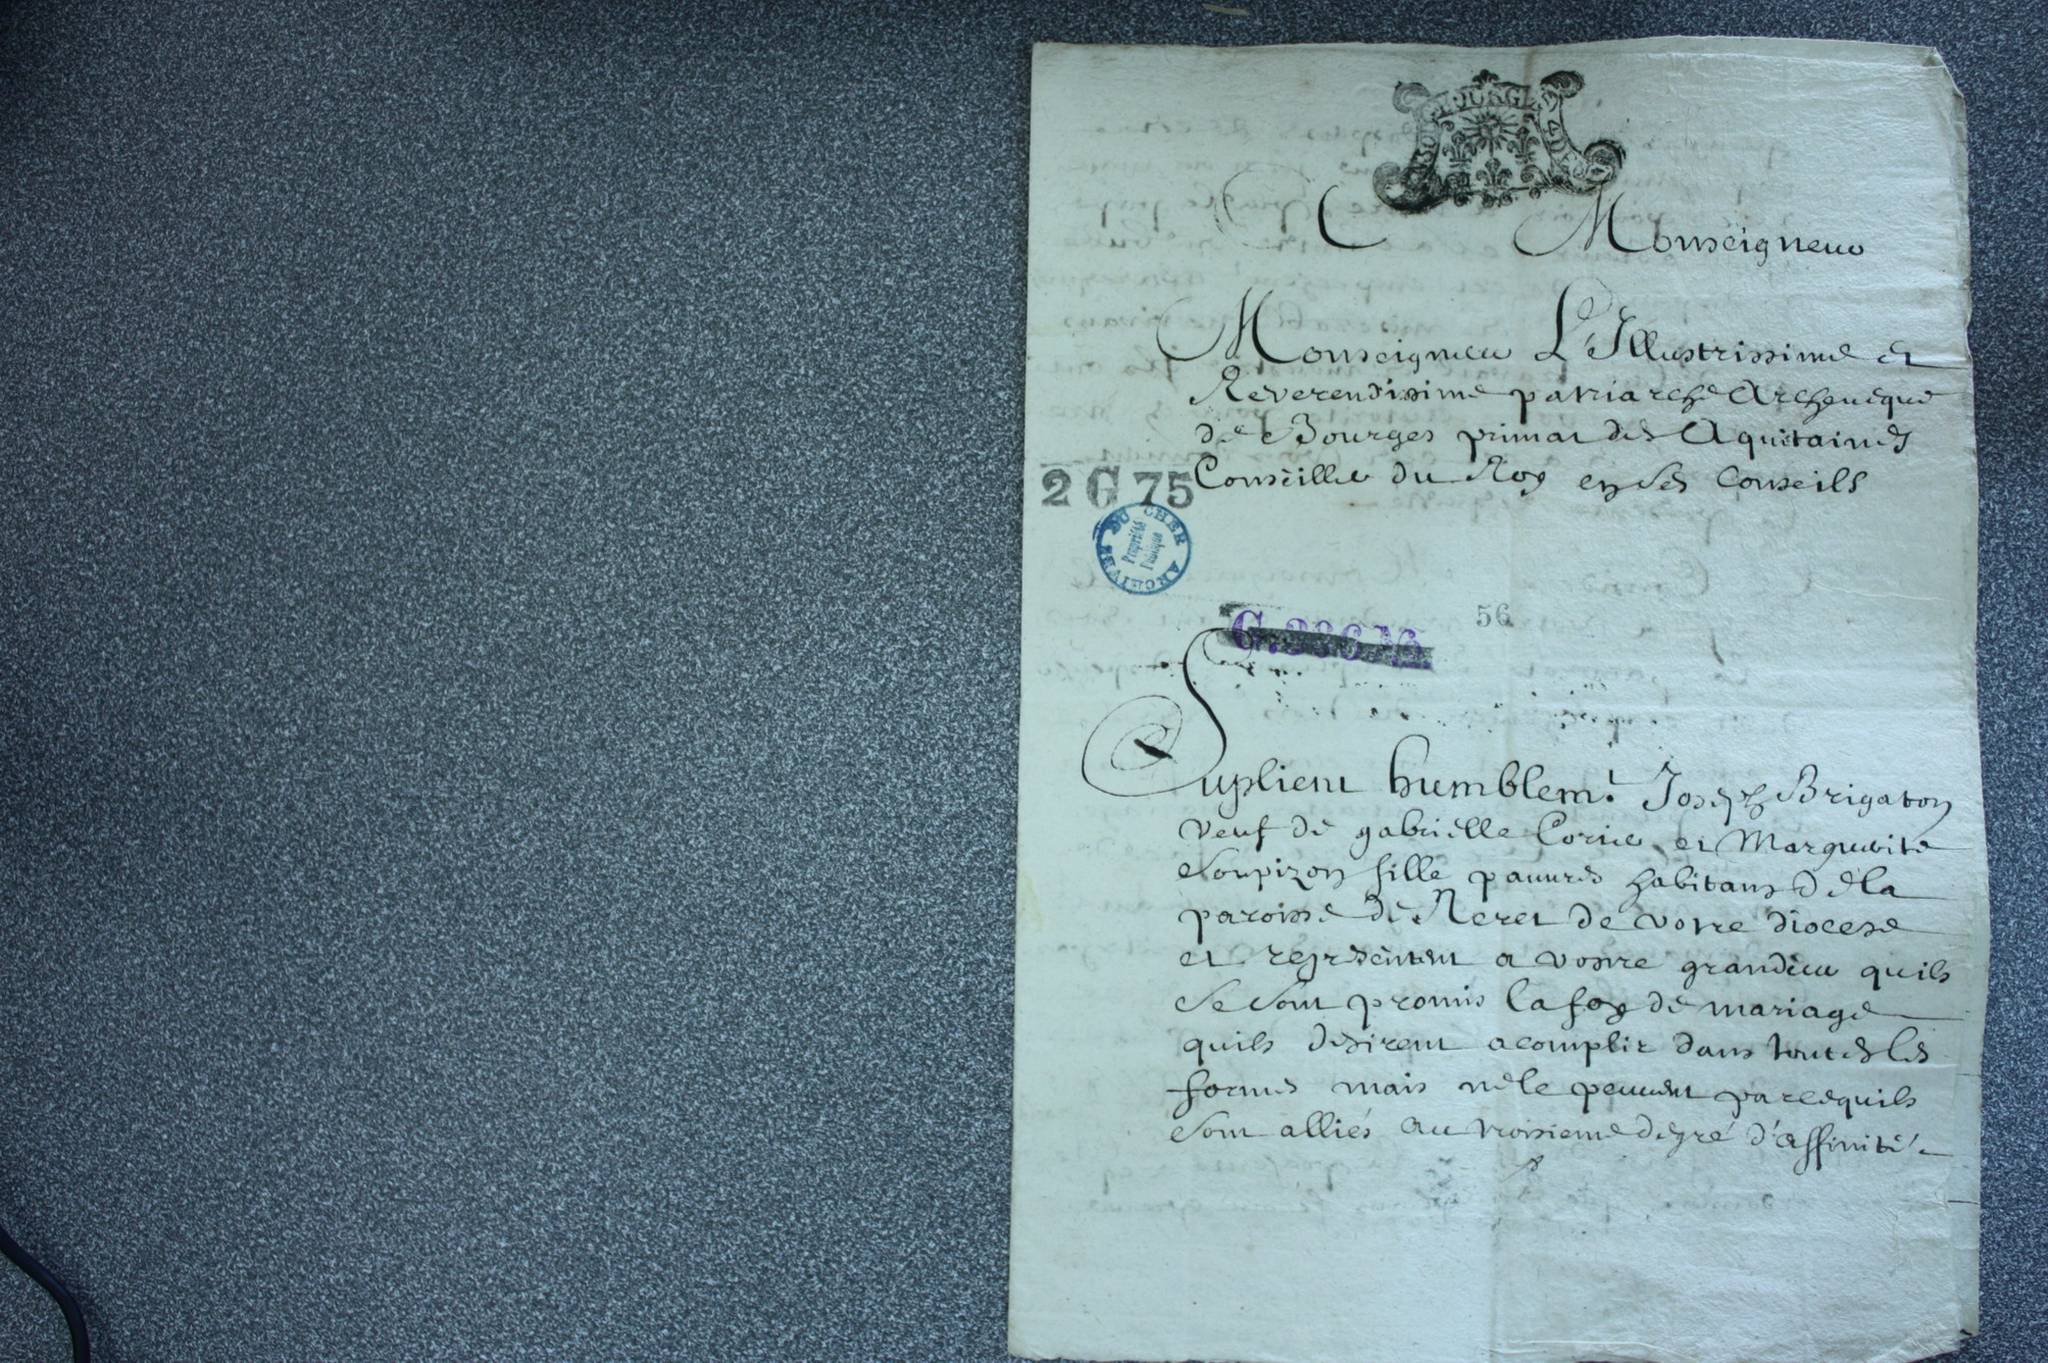 A Monseigneur
Monseigneur L'Illustrissime et
Reverendissime patriarche Archeueque
de Bourges primat des Aquitaines
Conseiller du Roy en Ses Conseils
2 G 75
ARCHIVES DU CHER
Propriété
Publique
56
Suplient humblemt. Joseph Brigaton
veuf de gabrielle Corue et Marguerite
Soupizon fille pauures habitans de la
paroisse de Neret de votre diocese
et represèntent a vostre grandeur quils
Se Sont promis la foy de mariage
quils desirent acomplir dans toutes les
formes mais ne le peuuent parcequils
Sont alliés au troisieme degré d'affinité